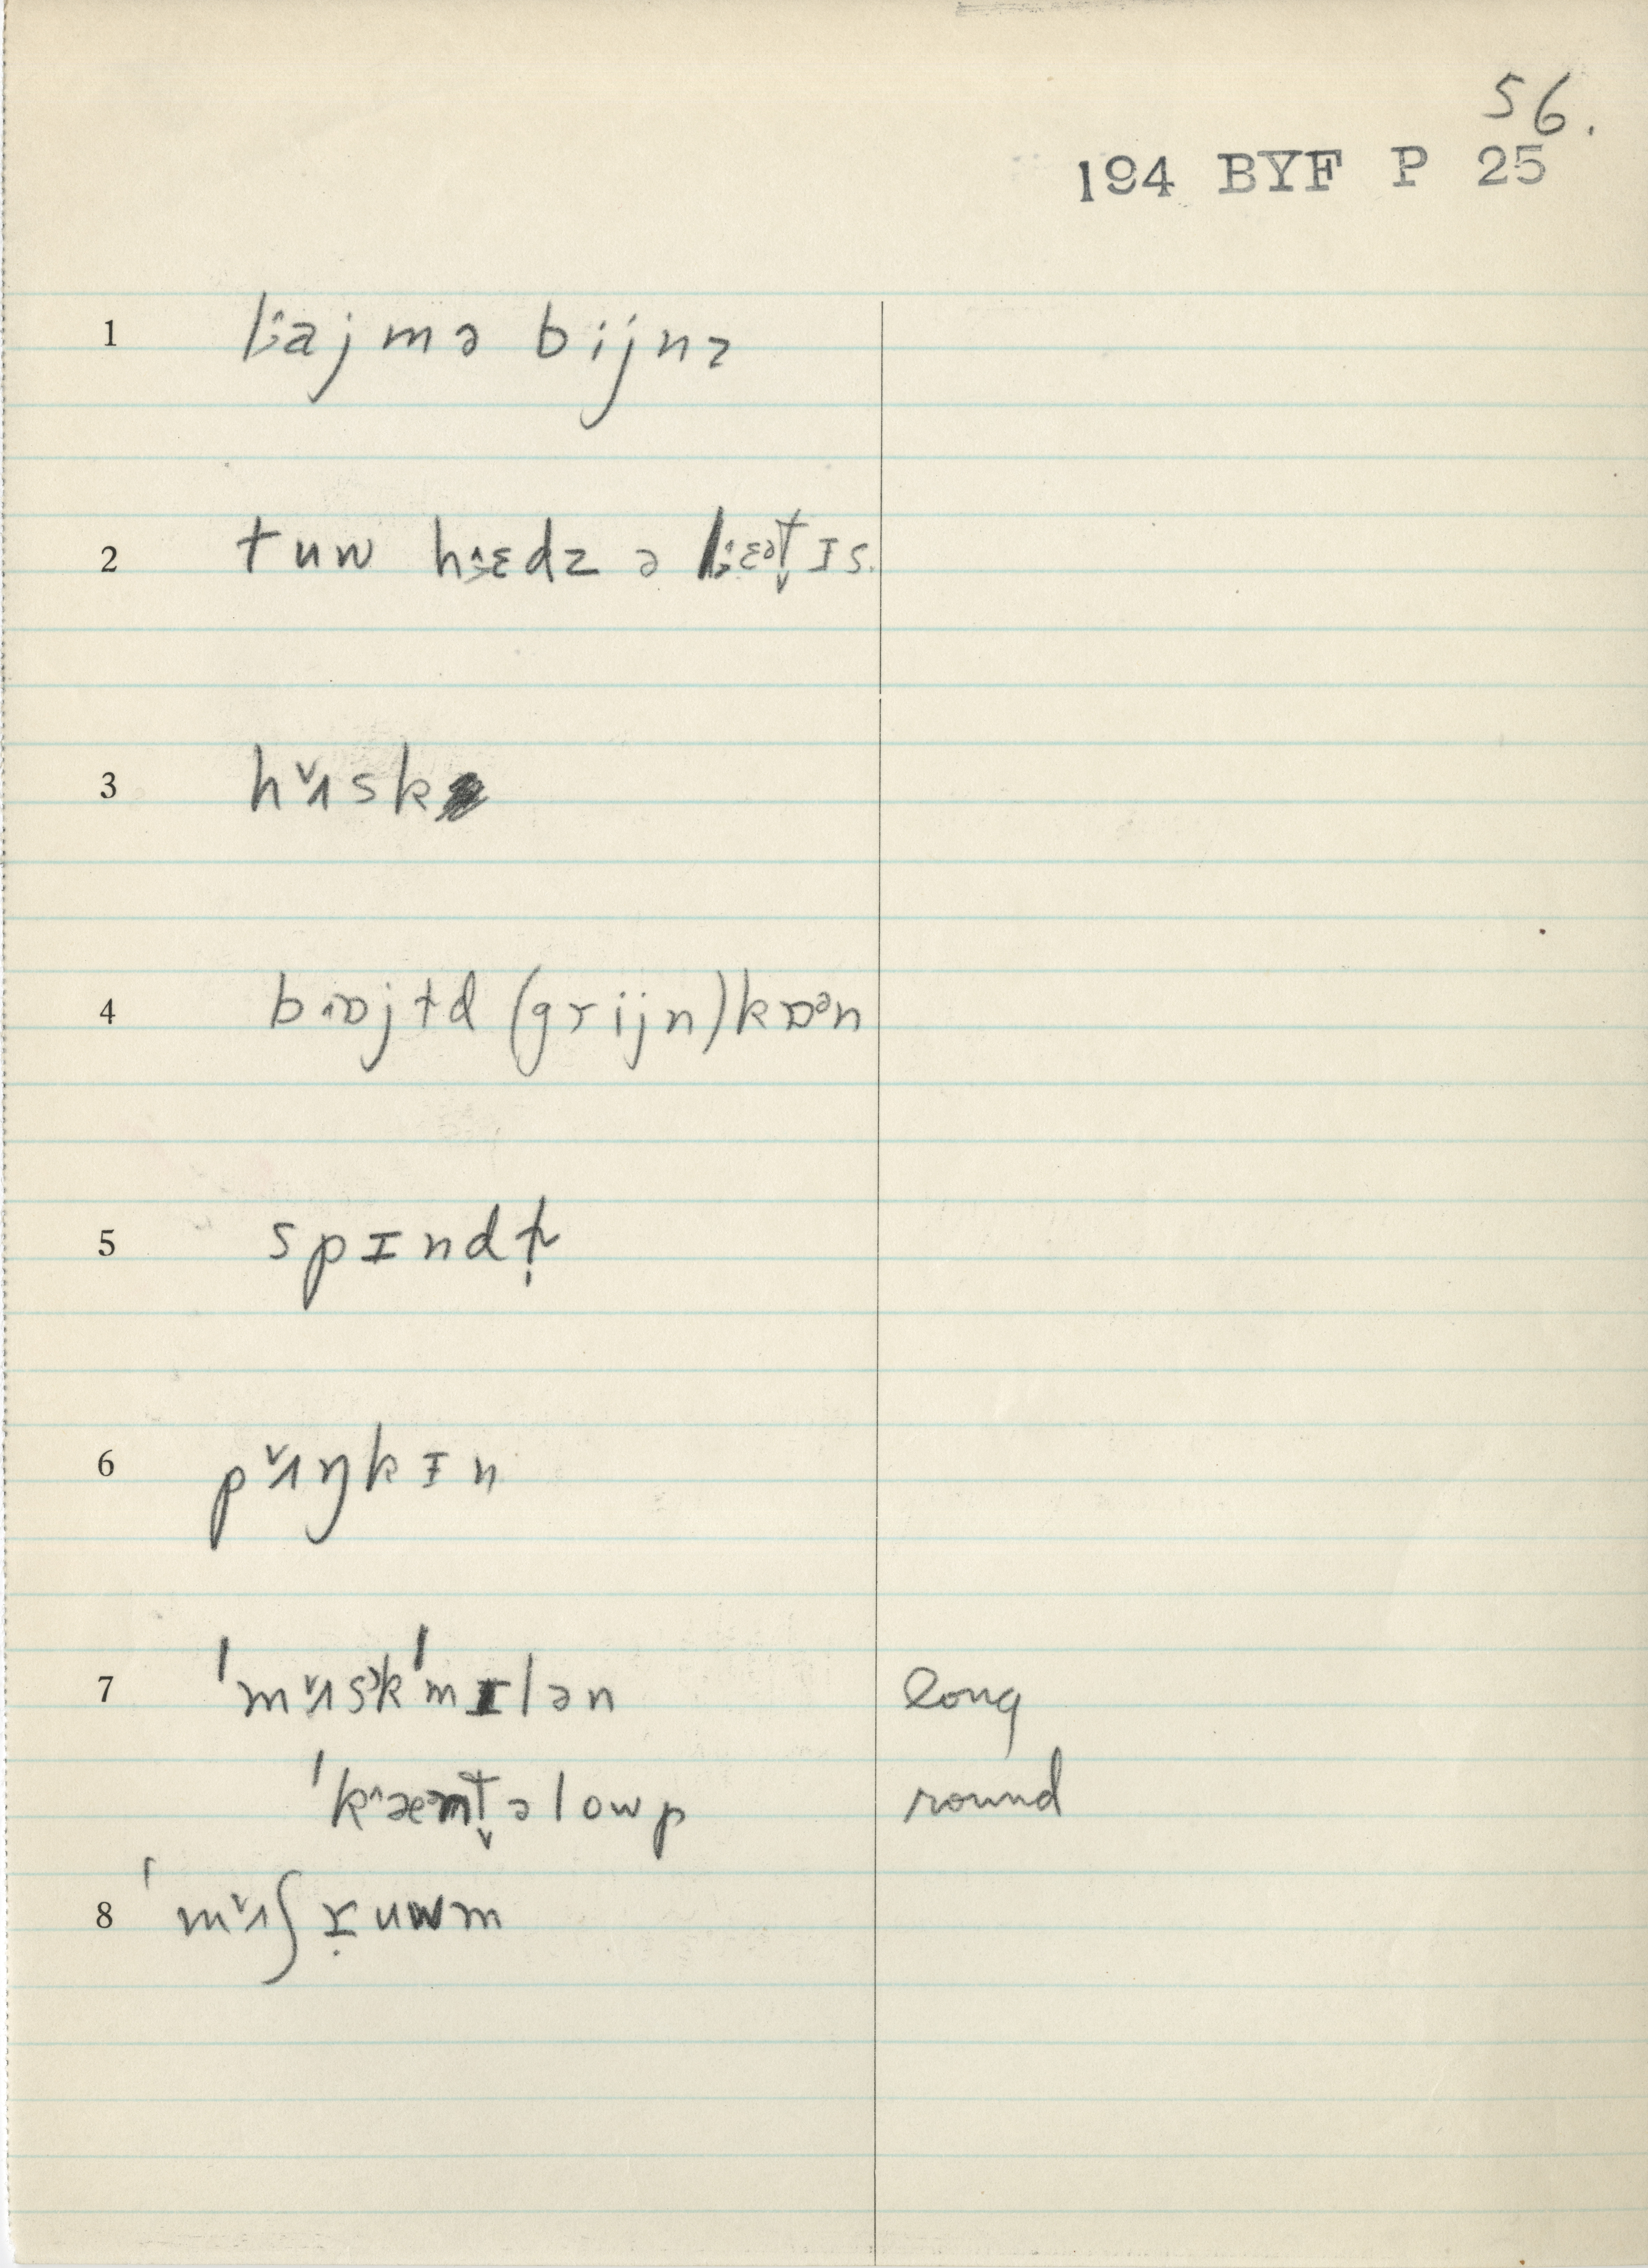 56.
194 BYF P 25
1 lajmə bijnz
2 tuw hɛdz ə lɛətɪs.
3 hʌsk
4 bɒjɫd (grijn) kɒən
5 spɪndʒ
6 pʌŋkɪn
7 ˈmʌskˈmɪlən long
ˈkæntəlowp round
8 ˈmʌʃruwm